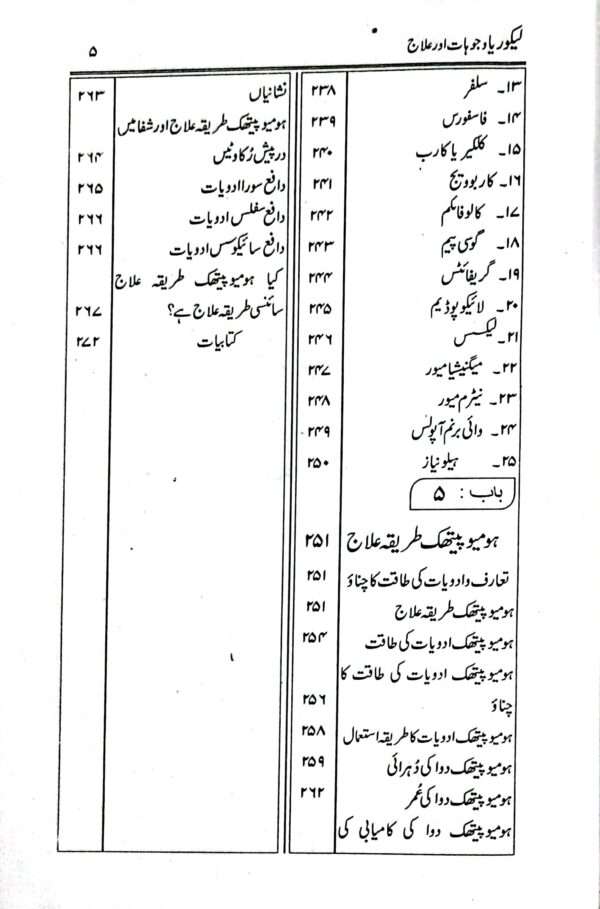 لیکوریا وجوہات اور علاج ۵
۱۳۔ سلفر ۲۳۸
۱۴۔ فاسفورس ۲۳۹
۱۵۔ کلکیریا کارب ۲۴۰
۱۶۔ کاربوویج ۲۴۱
۱۷۔ کالوفائکم ۲۴۲
۱۸۔ گوسی پیم ۲۴۳
۱۹۔ گریفائٹس ۲۴۴
۲۰۔ لائیکوپوڈیم ۲۴۵
۲۱۔ لیکسس ۲۴۶
۲۲۔ میگنیشیا میور ۲۴۷
۲۳۔ نیٹرم میور ۲۴۸
۲۴۔ وائی برنم آپولس ۲۴۹
۲۵۔ ہیلونیاز ۲۵۰
باب : ۵
ہومیوپیتھک طریقہ علاج ۲۵۱
تعارف و ادویات کی طاقت کا چناؤ ۲۵۱
ہومیوپیتھک طریقہ علاج ۲۵۱
ہومیوپیتھک ادویات کی طاقت ۲۵۴
ہومیوپیتھک ادویات کی طاقت کا
چناؤ ۲۵۶
ہومیوپیتھک ادویات کا طریقہ استعمال ۲۵۸
ہومیوپیتھک دوا کی دُہرائی ۲۵۹
ہومیوپیتھک دوا کی عُمر ۲۶۲
ہومیوپیتھک دوا کی کامیابی کی
نشانیاں ۲۶۳
ہومیوپیتھک طریقہ علاج اور شفا میں
درپیش رُکاوٹیں ۲۶۴
دافع سورا ادویات ۲۶۵
دافع سفلس ادویات ۲۶۶
دافع سائیکوسس ادویات ۲۶۶
کیا ہومیوپیتھک طریقہ علاج
سائنسی طریقہ علاج ہے؟ ۲۶۷
کتابیات ۲۷۲